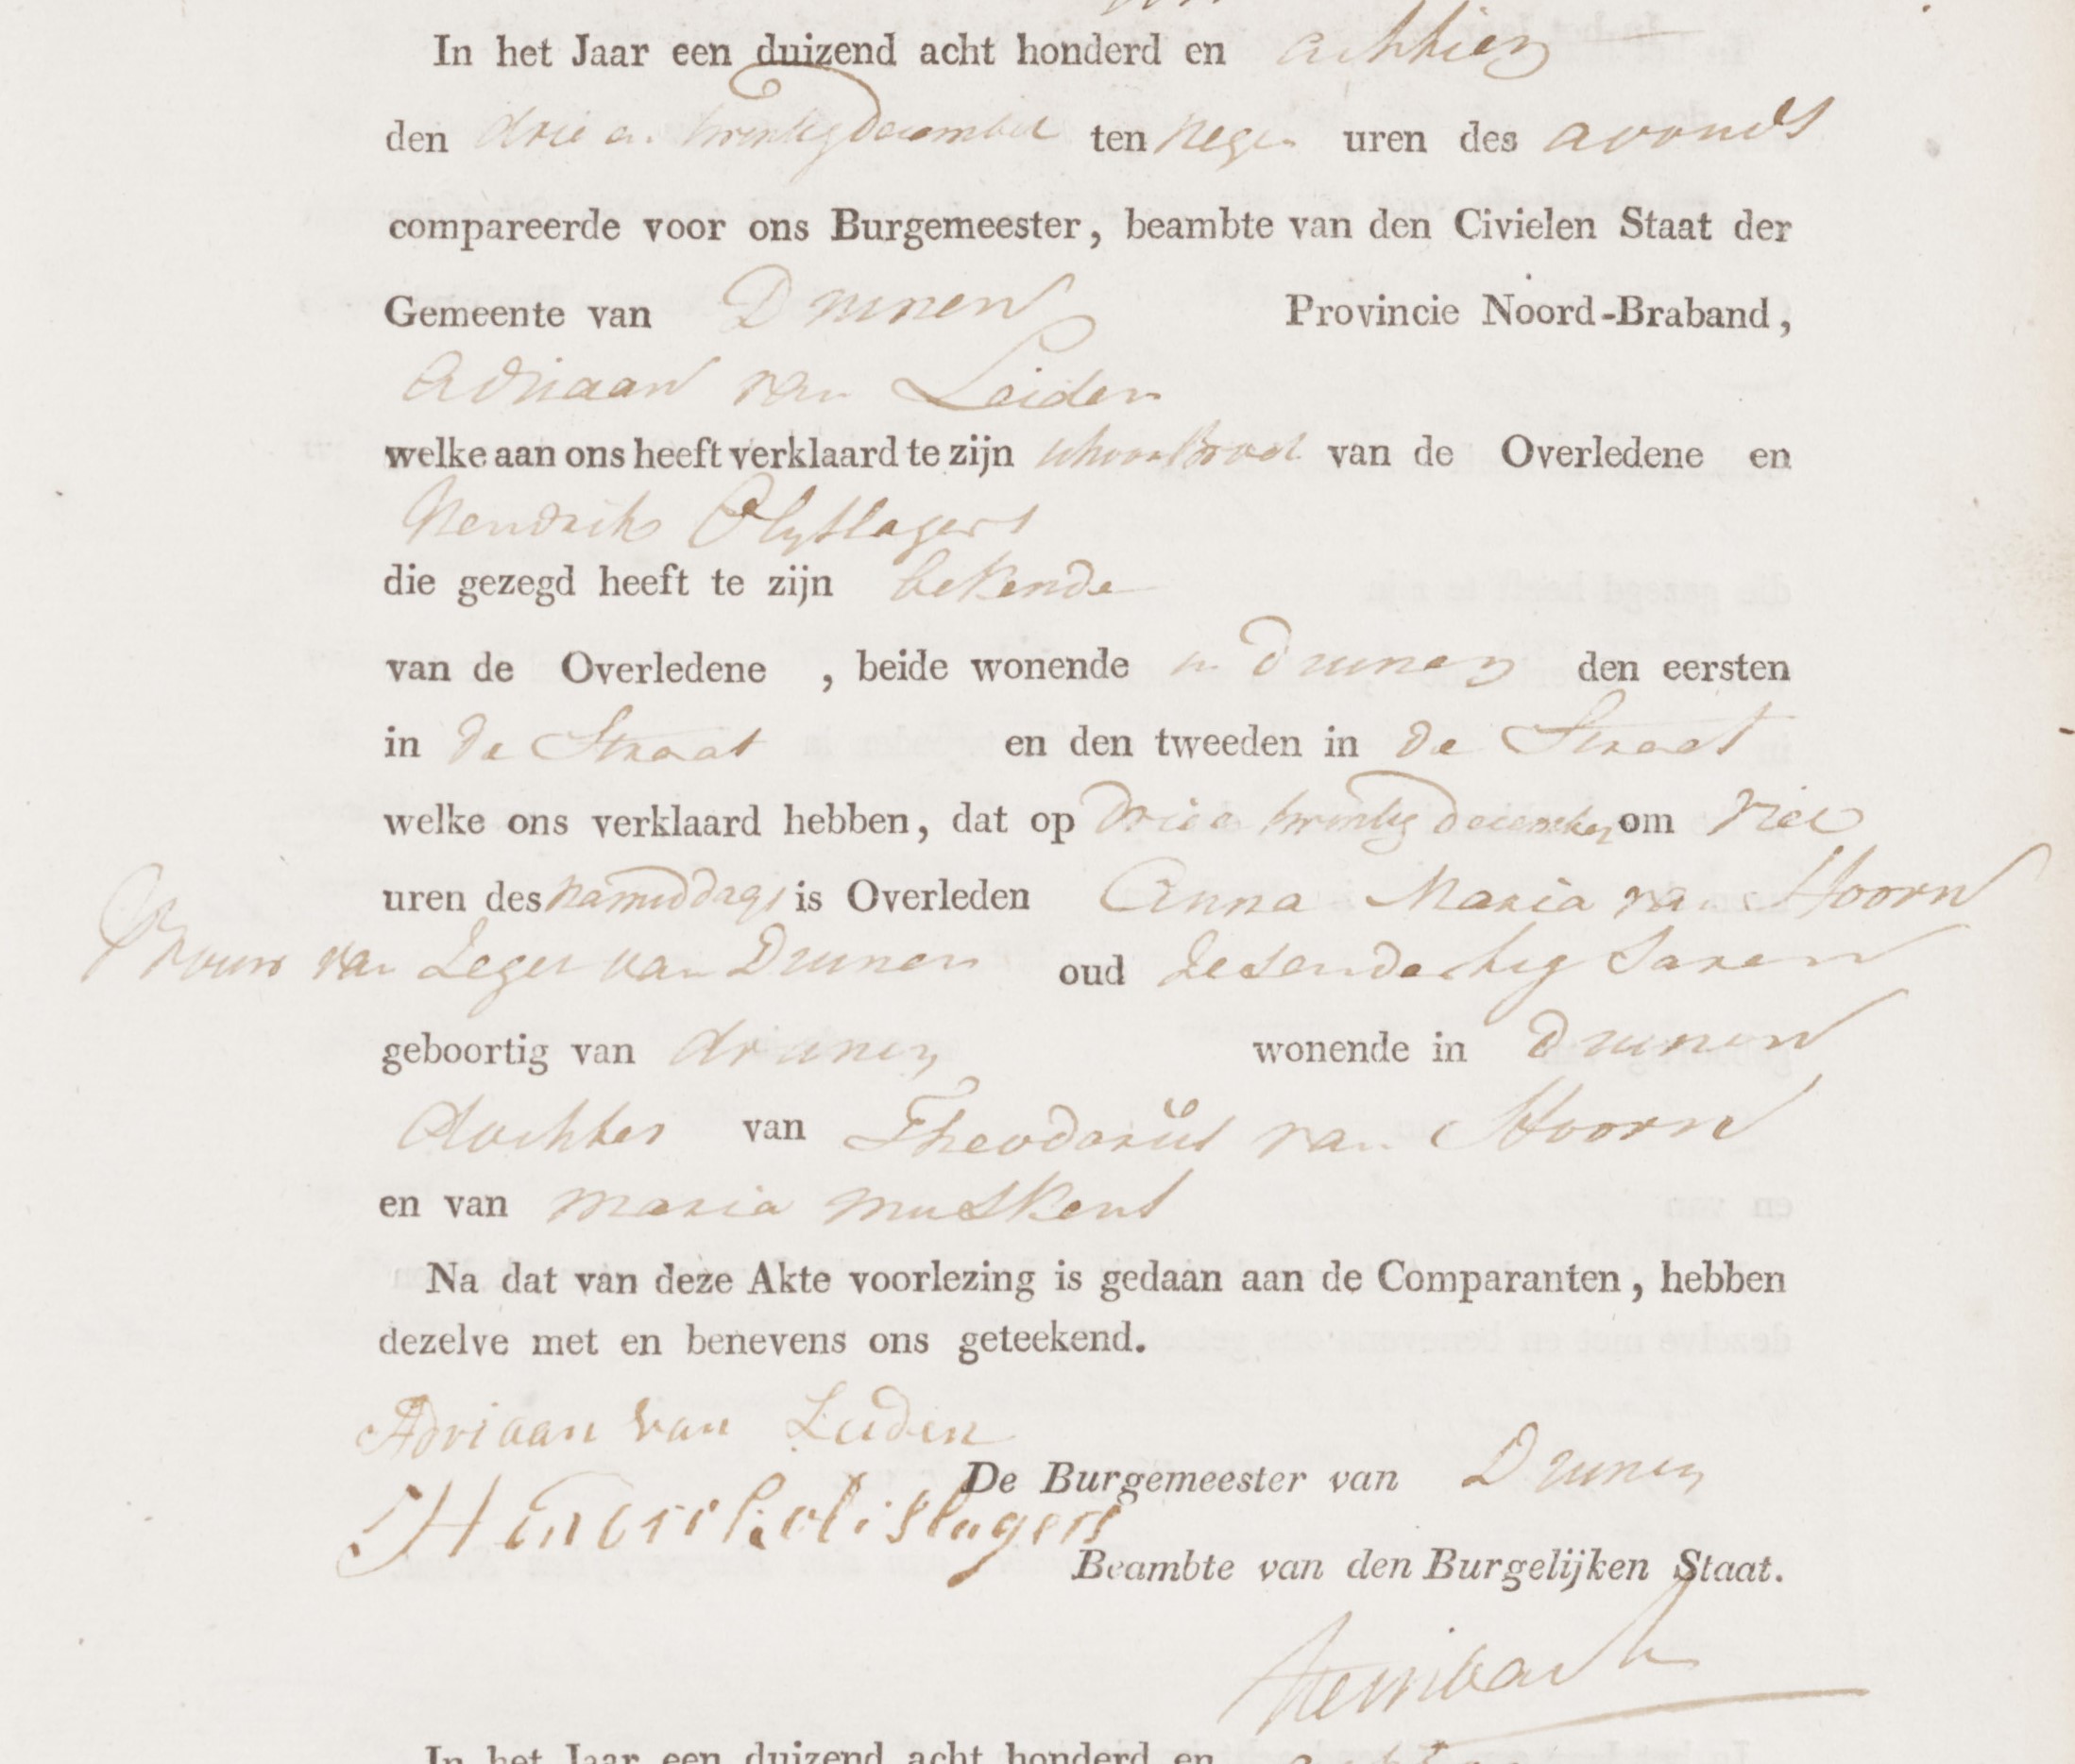 In het Jaar een duizend acht honderd en achtien
den drie en twintig december ten negen uren des avonds
compareerde voor ons Burgemeester, beambte van den Civielen Staat der
Gemeente van Drunen Provincie Noord-Braband,
Adriaan van Leiden
welke aan ons heeft verklaard te zijn schoonbroed van de Overledene en
Hendrik Olyslagers
die gezegd heeft te zijn bekende
van de Overledene , beide wonende in Drunen den eersten
in de Straat en den tweeden in de Straat
welke ons verklaard hebben, dat op drie en twintig december om vier
uren des namiddags is Overleden Anna Maria van Hoorn
Vrouw van Zeger van Drunen oud Zesendertig Jaren
geboortig van drunen wonende in Drunen
dochter van Theodorus van Hoorn
en van maria muskens
Na dat van deze Akte voorlezing is gedaan aan de Comparanten, hebben
dezelve met en benevens ons geteekend.
Adriaan van Leiden
De Burgemeester van Drunen
Hendrik olislagers
Beambte van den Burgelijken Staat.
In het Jaar een duizend acht honderd en